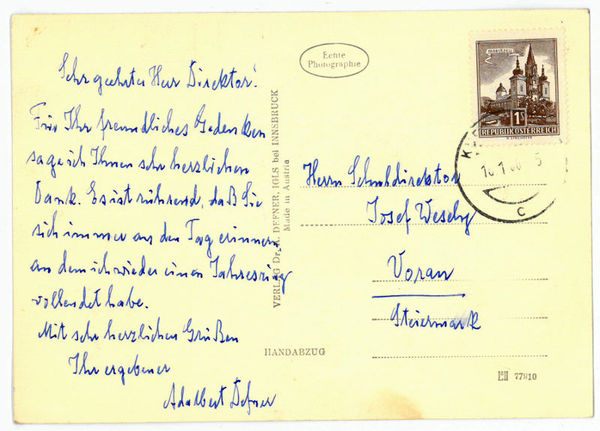 Sehr geehrter Herr Direktor!
Für Ihr freundliches Gedenken
sage ich Ihnen sehr herzlichen
Dank. Es ist rührend, daß Sie
sich immer an den Tag erinnern,
an dem ich wieder einen Jahresring
vollendet habe.
Mit sehr herzlichen Grüßen
Ihr ergebener
Adalbert Defner
Echte
Photographie
VERLAG Dr. A. DEFNER, IGLS bei INNSBRUCK
Made in Austria
HANDABZUG
MARIAZELL
1S
REPUBLIK ÖSTERREICH
C
Herrn Schuldirektor
Josef Wesely
Vorau
Steiermark
77910